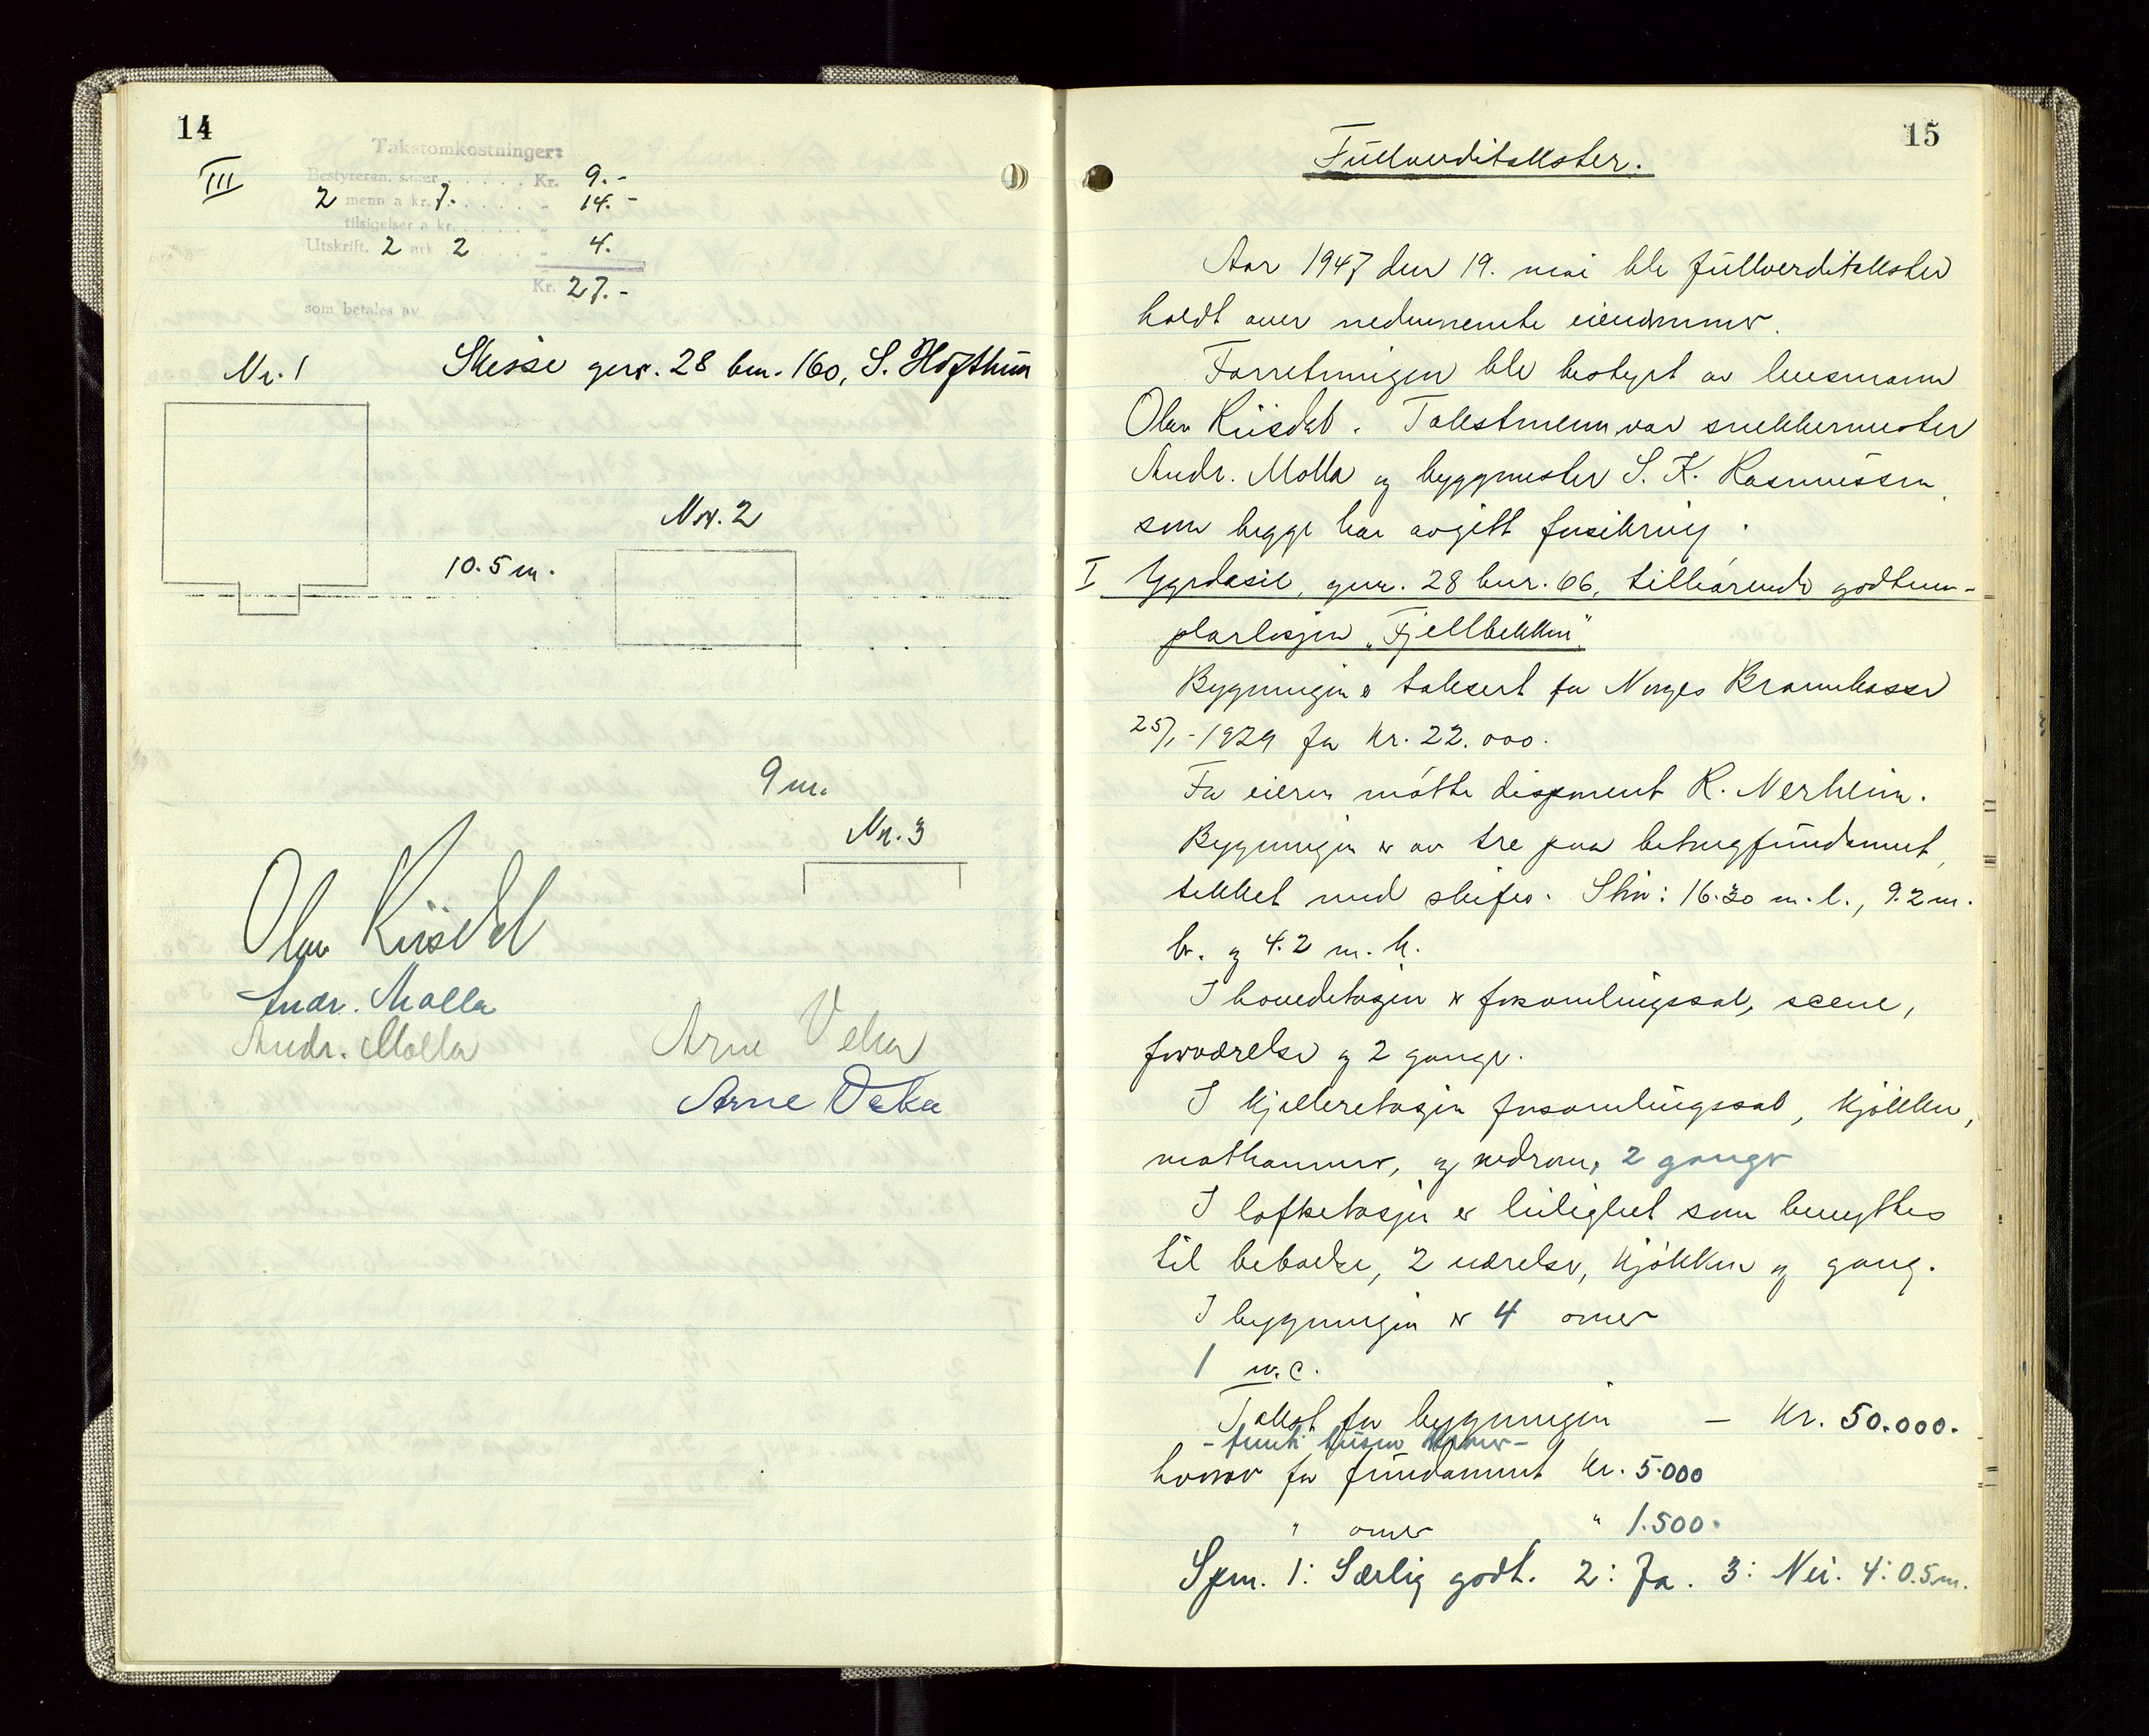 14
III
Takstomkostninger:
Bestyreren, saker . . . . . . Kr. 9.-
2 menn a kr. 7. . . . . . . - 14.-
tilsigelser a kr. . . . . . . -
Utskrift. 2 ark 2 . . . . - 4.
Kr. 27.-
som betales av
Nr. 1 Skisse gnr. 28 bnr. 160, S. Høfthun
Nr. 2
10.5 m.
9 m.
Nr. 3
Olav Riisdal
Andr. Molla
Andr. Molla Arne Veka
Arne Veka
15
Füllverditakster.
Aar 1947 den 19. mai ble füllverditakster
holdt over nedennevnte eiendommer.
Forretningen ble bestyrt av lensmann
Olav Riisdal. Takstmenn var snekkermester
Andr. Molla og byggmester S. K. Rasmüssen,
som begge har avgitt forsikring.
I Ygrdasil, gnr. 28 bnr. 66, tilhørende godtem-
plarlosjen "Fjellbekken".
Bygningen er taksert for Norges Brannkasse
25/1-1929 for kr. 22.000.
For eieren møtte disponent R. Nerheim.
Bygningen er av tre paa betongfündament,
tekket med skifer. Stør: 16.30 m. l., 9.2 m.
br. og 4.2 m. h.
I hovedetasjen er forsamlingssal, scene,
forværelse og 2 ganger.
I kjelleretasjen forsamlingssal, kjøkken,
matkammer, og vedrom, 2 ganger
I loftsetasjen er leilighet som benyttes
til beboelse, 2 værelser, kjøkken og gang.
I bygningen er 4 omer
1 w.c.
Takst for bygningen — Kr. 50.000.
- femti tüsen kroner -
hvorav for fündament kr. 5.000
" omer " 1.500.
Spm. 1: Særlig godt. 2: Ja. 3: Nei. 4: 0.5 m.